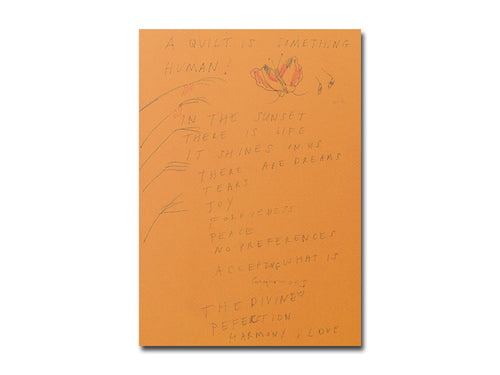 A QUILT IS SOMETHING
HUMAN!
IN THE SUNSET
THERE IS LIFE
IT SHINES IN US
THERE ARE DREAMS
TEARS
JOY
FORGIVENESS
PEACE
NO PREFERENCES
ACCEPTING WHAT IS
THE DIVINE
PEFECTION
HARMONY, LOVE